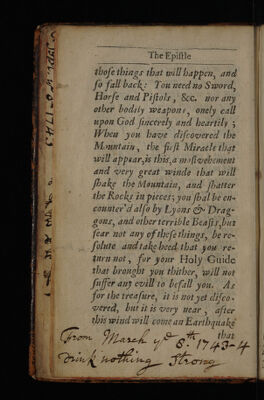 The Epistle
those things that will happen, and
so fall back: You need no Sword,
Horse and Pistols, &c. nor any
other bodily weapons, onely call
upon God sincerely and heartily;
When you have discovered the
Mountain, the first Miracle that
will appear, is this, a most vehement
and very great winde that will
shake the Mountain, and shatter
the Rocks in pieces; you shal be en-
counter'd also by Lyons & Drag-
gons, and other terrible Beasts, but
fear not any of these things, be re-
solute and take heed that you re-
turn not, for your Holy Guide
that brought you thither, will not
suffer any evill to befall you. As
for the treasure, it is not yet disco-
vered, but it is very near, after
this wind will come an Earthquake
that
From March ye 6th. 1743-4
Drink nothing Strong